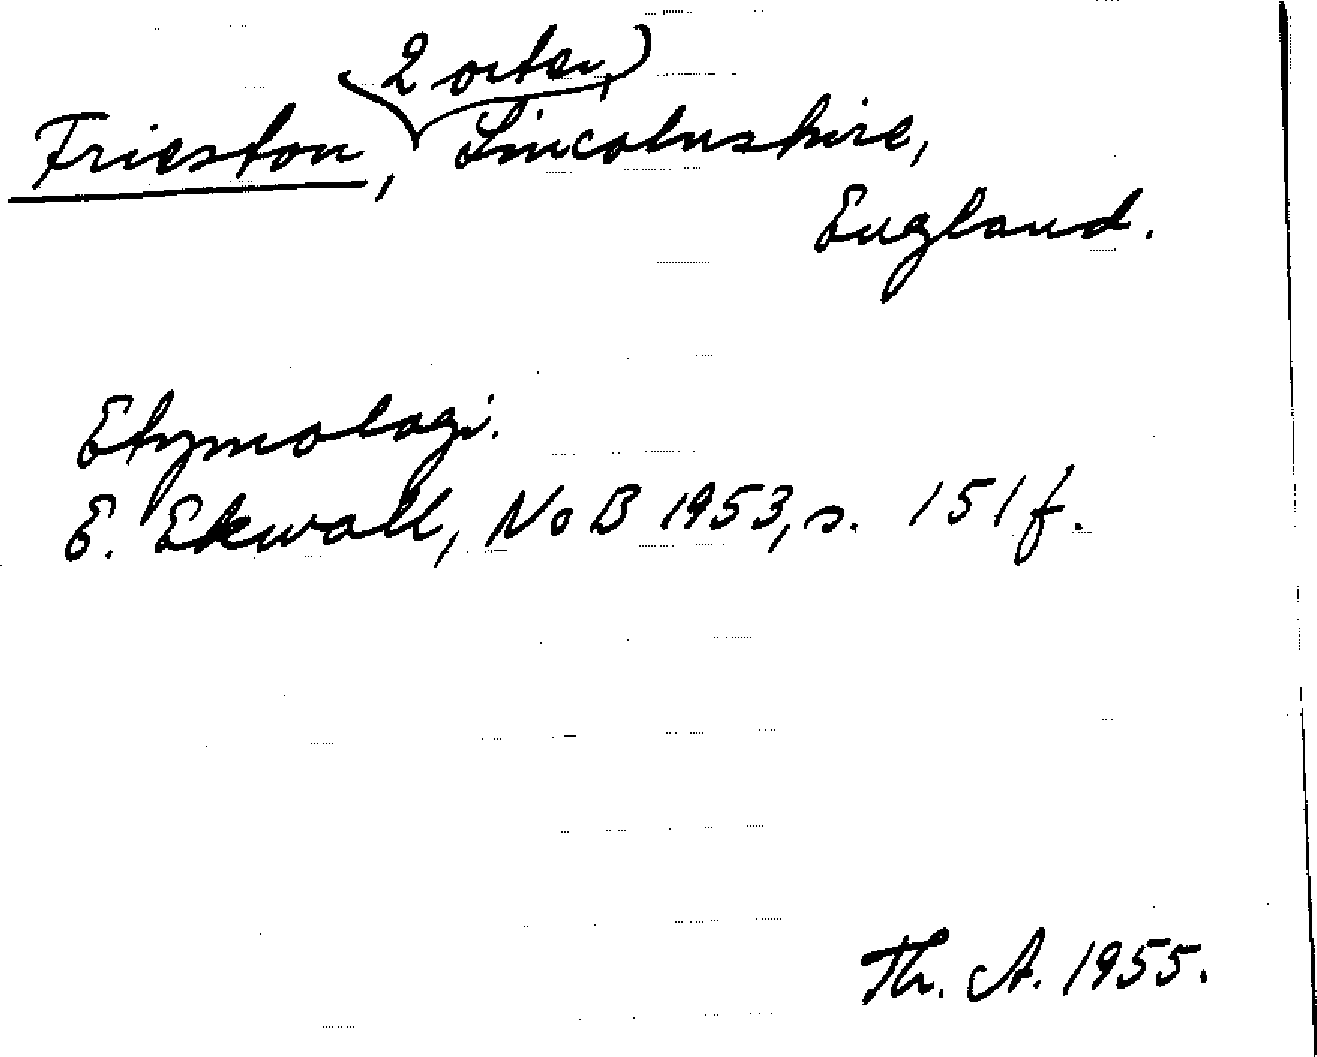 2 orter,
Frieston, Lincolnshire,
England.
Etymologi.
E. Ekwall, NoB 1953, s. 151 f.
Th. A. 1955.